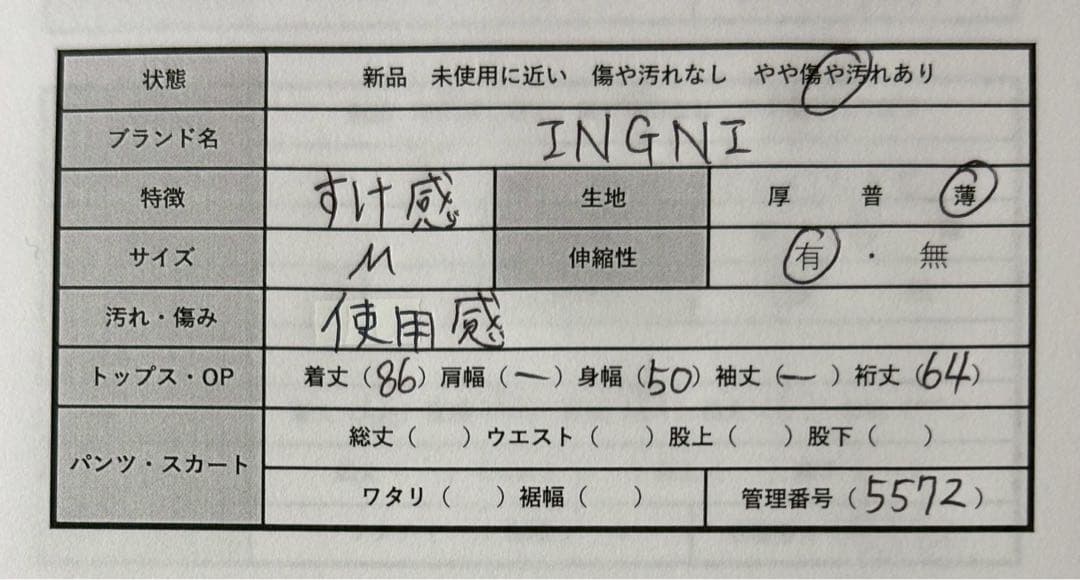 状態 新品 未使用に近い 傷や汚れなし やや傷や汚れあり
ブランド名 INGNI
特徴 すけ感 生地 厚 普 薄
サイズ M 伸縮性 有・無
汚れ・傷み 使用感
トップス・OP 着丈（86）肩幅（ー）身幅（50）袖丈（ー）裄丈（64）
パンツ・スカート 総丈（ ）ウエスト（ ）股上（ ）股下（ ）
ワタリ（ ）裾幅（ ） 管理番号（5572）